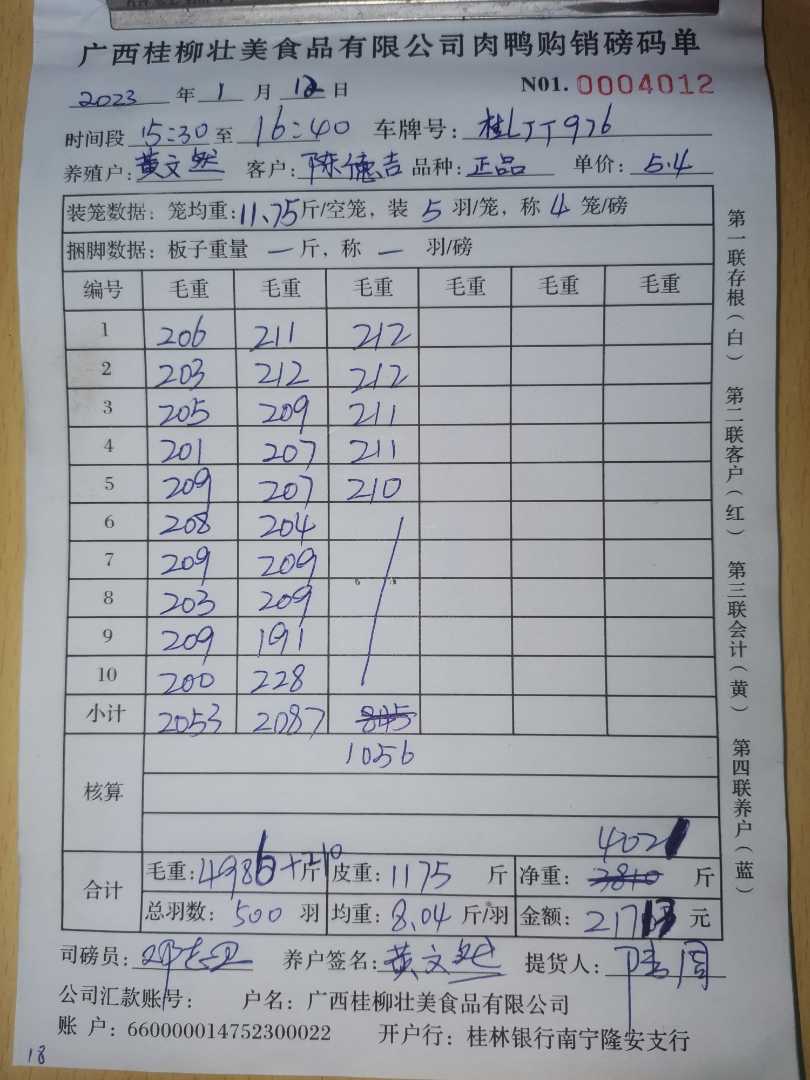 广西桂柳壮美食品有限公司肉鸭购销磅码单
2023 年 1 月 12 日 N01. 0004012
时间段 15:30 至 16:40 车牌号: 桂LJJ976
养殖户: 黄文然 客户: 陈德吉 品种: 正品 单价: 5.4
装笼数据: 笼均重: 11.75 斤/空笼, 装 5 羽/笼, 称 4 笼/磅
捆脚数据: 板子重量 — 斤, 称 — 羽/磅
编号 毛重 毛重 毛重 毛重 毛重 毛重
1 206 211 212
2 203 212 212
3 205 209 211
4 201 207 211
5 209 207 210
6 208 204
7 209 209
8 203 209
9 209 191
10 200 228
小计 2053 2087 845
1056
核算
4021
合计 毛重: 4986+210 斤 皮重: 1175 斤 净重: 3810 斤
总羽数: 500 羽 均重: 8.04 斤/羽 金额: 21713 元
司磅员: 养户签名: 黄文然 提货人:
公司汇款账号: 户名: 广西桂柳壮美食品有限公司
账 户: 660000014752300022 开户行: 桂林银行南宁隆安支行
18
第一联存根(白) 第二联客户(红) 第三联会计(黄) 第四联养户(蓝)